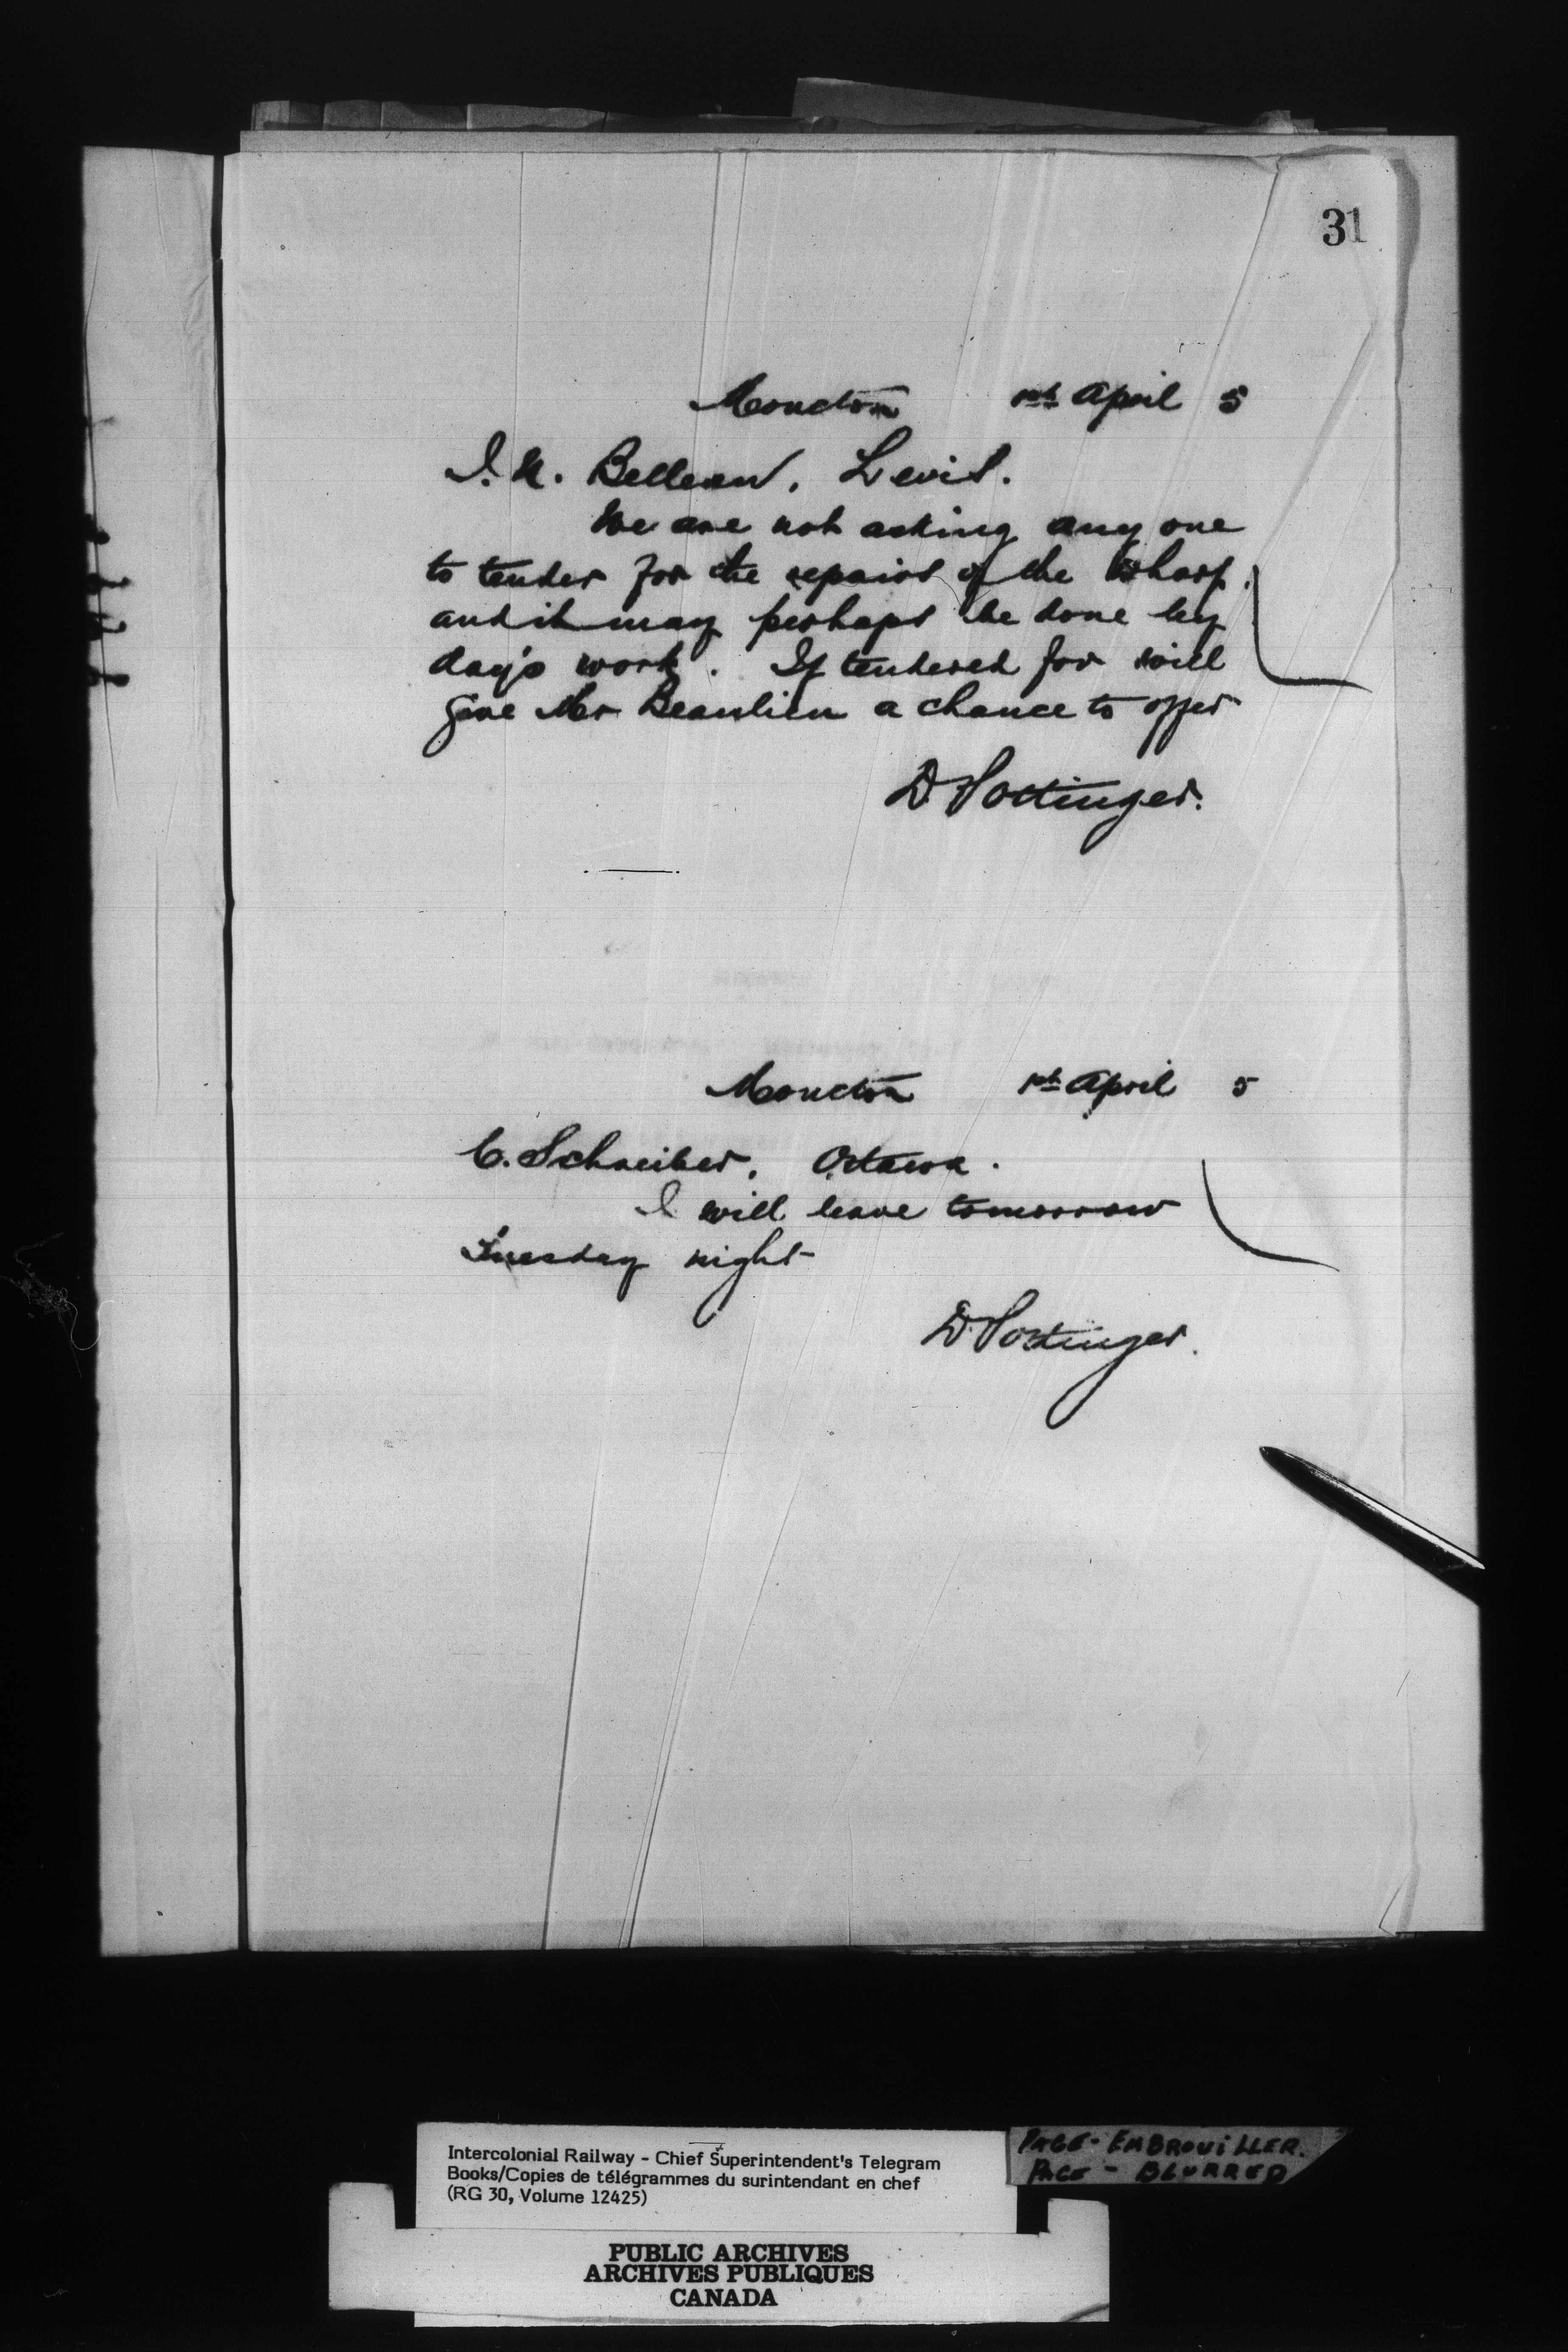 31
Moncton 1st April 5
I. N. Belleau, Levis.
We are not asking any one
to tender for the repairs of the Wharf.
and it may perhaps be done by
day's work. If tendered for will
give Mr Beaulieu a chance to offer
D Pottinger.
Moncton 1st April 5
C. Schreiber, Ottawa.
I will leave tomorrow
Tuesday night
D. Pottinger.
PAGE - EMBROUILLER.
PAGE - BLURRED
Intercolonial Railway - Chief Superintendent's Telegram
Books/Copies de télégrammes du surintendant en chef
(RG 30, Volume 12425)
PUBLIC ARCHIVES
ARCHIVES PUBLIQUES
CANADA